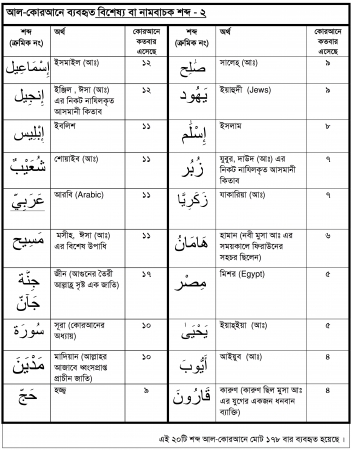 আল-কোরআনে ব্যবহৃত বিশেষ্য বা নামবাচক শব্দ - ২
শব্দ (ক্রমিক নং) অর্থ কোরআনে কতবার এসেছে শব্দ (ক্রমিক নং) অর্থ কোরআনে কতবার এসেছে
إِسْمَاعِيل ইসমাইল (আঃ) ১২ صَٰلِح সালেহ (আঃ) ৯
إِنجِيل ইঞ্জিল , ঈসা (আঃ) এর নিকট নাযিলকৃত আসমানী কিতাব ১২ يَهُود ইয়াহুদী (Jews) ৯
إِبْلِيس ইবলিশ ১১ إِسْلَٰم ইসলাম ৮
شُعَيْبٌ শোয়াইব (আঃ) ১১ زُبُر যুবুর, দাউদ (আঃ) এর নিকট নাযিলকৃত আসমানী কিতাব ৭
عَرَبِيّ আরবি (Arabic) ১১ زَكَرِيَّا যাকারিয়া (আঃ) ৭
مَسِيح মসীহ, ঈসা (আঃ) এর বিশেষ উপাধি ১১ هَامَانُ হামান (নবী মুসা আঃ এর সময়কালে ফিরাউনের সহচর ছিলেন) ৬
جِنَّة جَآنّ জীন (আগুনের তৈরী আল্লাহ্‌র সৃষ্ট এক জাতি) ১৭ مِصْر মিশর (Egypt) ৫
سُورَة সূরা (কোরআনের অধ্যায়) ১০ يَحْيَىٰ ইয়াহ্ইয়া (আঃ) ৫
مَدْيَن মাদিয়ান (আল্লাহর আজাবে ধ্বংসপ্রাপ্ত প্রাচীন জাতি) ১০ أَيُّوبَ আইয়ুব (আঃ) ৪
حَجّ হজ্ব ৯ قَارُونَ কারুণ (কারুণ ছিল মুসা আঃ এর যুগের একজন ধনবান ব্যাক্তি) ৪
এই ২০টি শব্দ আল-কোরআনে মোট ১৭৮ বার ব্যবহৃত হয়েছে ।